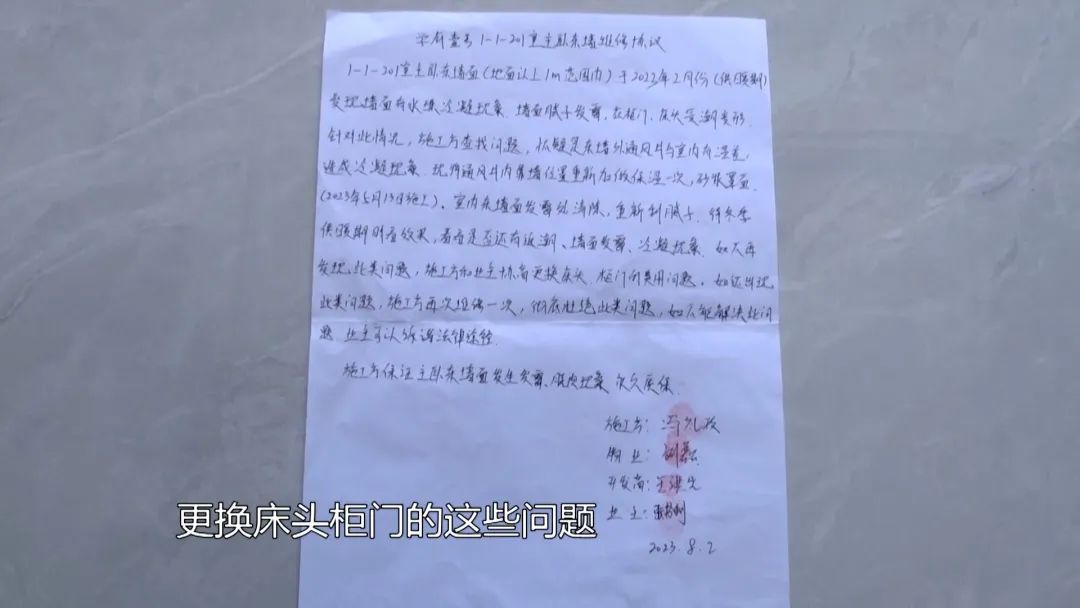 学府壹号1-1-201室主卧东墙维修协议
1-1-201室主卧东墙面(地面以上1m范围内)于2023年2月份(供暖期)
发现墙面有水珠冷凝现象.墙面腻子发霉,衣柜门、床头受潮变形.
针对此情况,施工方查找问题,怀疑是东墙外通风井与室内有温差,
造成冷凝现象.现将通风井内靠墙位置重新加做保温一次,砂浆罩面.
(2023年5月13日施工)、室内东墙面发霉处清除,重新刮腻子.待冬季
供暖期明看效果,看看是否还有返潮、墙面发霉、冷凝现象.如不再
发现此类问题,施工方和业主协商更换床头、柜门的费用问题.如还出现
此类问题,施工方再次维修一次,彻底杜绝此类问题,如不能解决此问
题 业主可以诉诸法律途径.
施工方保证主卧东墙面发生发霉、脱皮现象 永久质保.
施工方:
物业:
开发商:
业主:
2023.8.2
更换床头柜门的这些问题